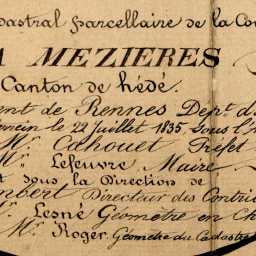 dastral parcellaire de la Co
A MEZIERES
Canton de hédé.
ent de Rennes Dep.t d
le 22 juillet 1835. Sous l
M.r Cahouet Préfet
M. Lefeuvre Maire
t sous la Direction de
mbert Directeur des Contri
r. Lesné Géomètre en Ch
M.r Roger, Géomètre du Cadastre